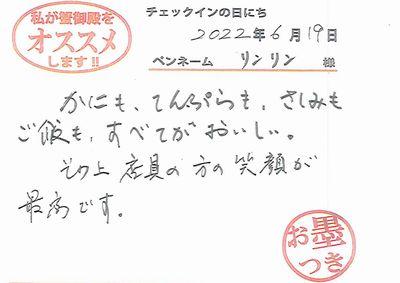 私が蟹御殿を
オススメ
します!!
チェックインの日にち
2022年6月19日
ペンネーム リンリン 様
かにも、てんぷらも、さしみも
ご飯も、すべてがおいしい。
その上 店員の方の笑顔が
最高です。
お墨
つき